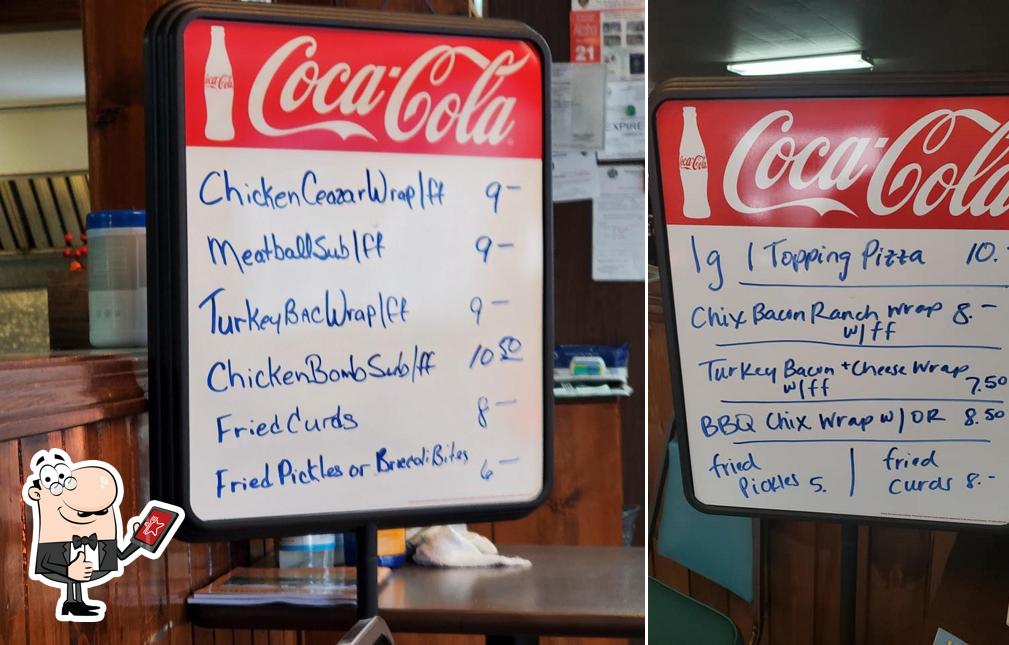 Coca-Cola
Coca-Cola
Chicken Ceazar Wrap/ff 9-
Meatball Sub/ff 9-
Turkey BAC Wrap/ff 9-
Chicken Bomb Sub/ff 10 50
Fried Curds 8-
Fried Pickles or Broccoli Bites 6-
21
EXPIRE
Coca-Cola
Coca-Cola
1g 1 Topping Pizza 10.
Chix Bacon Ranch wrap 8.-
w/ff
Turkey Bacon + Cheese Wrap
w/ff 7.50
BBQ Chix Wrap w/ OR 8.50
fried
Pickles 5.
fried
curds 8.-